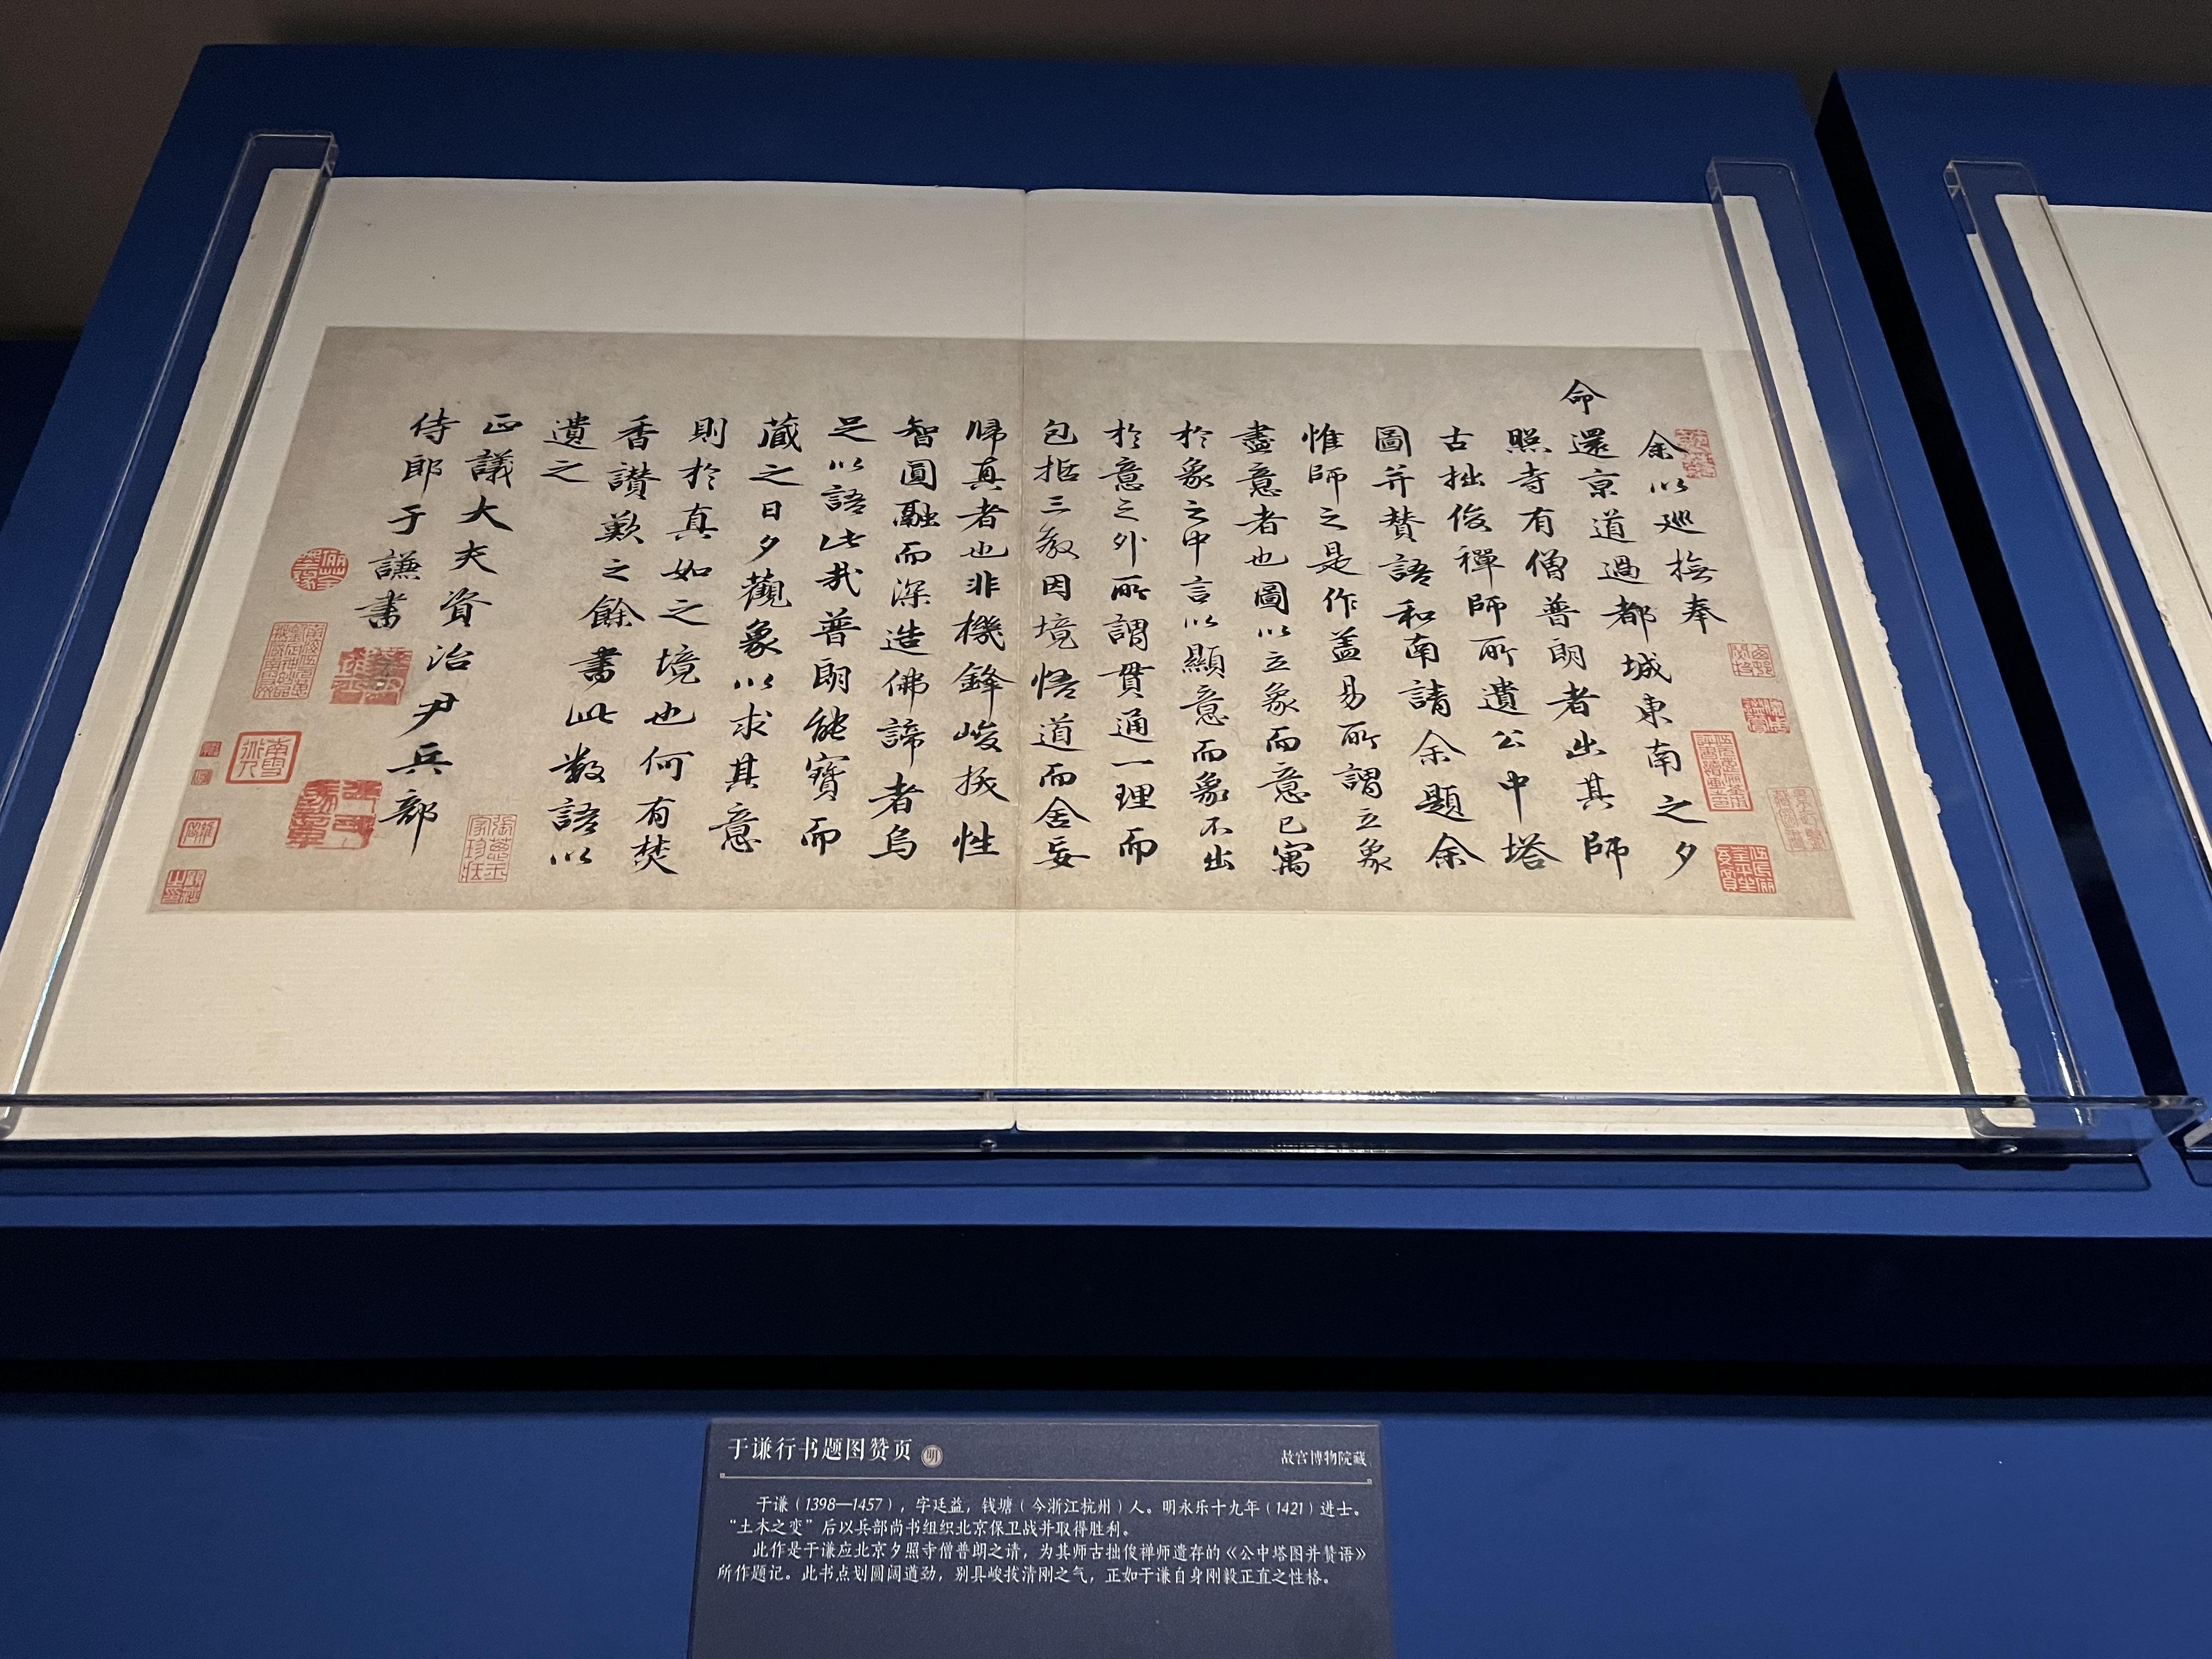 余以巡撫奉
命還京道過都城東南之夕
照寺有僧普朗者出其師
古拙俊禪師所遺公中塔
圖并賛語和南請余題余
惟師之是作盖易所謂立象
盡意者也圖以立象而意已寓
於象之中言以顯意而象不出
於意之外所謂貫通一理而
包括三教因境悟道而舍妄
歸真者也非機鋒峻拔性
智圓融而深造佛諦者烏
足以語此哉普朗能寶而
藏之日夕觀象以求其意
則於真如之境也何有焚
香讚歎之餘書此數語以
遺之
正議大夫資治尹兵部
侍郎于謙書
于谦行书题图赞页 明
故宫博物院藏
于谦（1398—1457），字廷益，钱塘（今浙江杭州）人。明永乐十九年（1421）进士。
“土木之变”后以兵部尚书组织北京保卫战并取得胜利。
此作是于谦应北京夕照寺僧普朗之请，为其师古拙俊禅师遗存的《公中塔图并赞语》
所作题记。此书点划圆阔遒劲，别具峻拔清刚之气，正如于谦自身刚毅正直之性格。